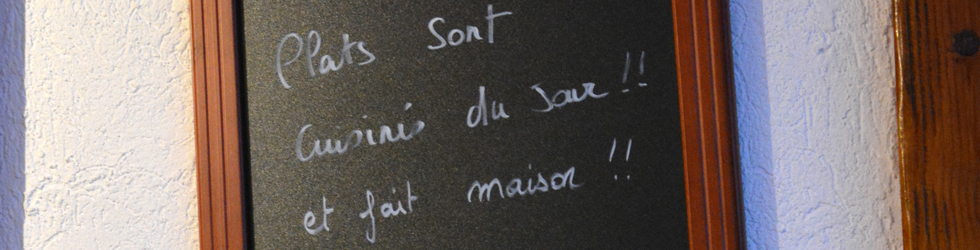 Plats sont
cuisinés du jour !!
et fait maison !!